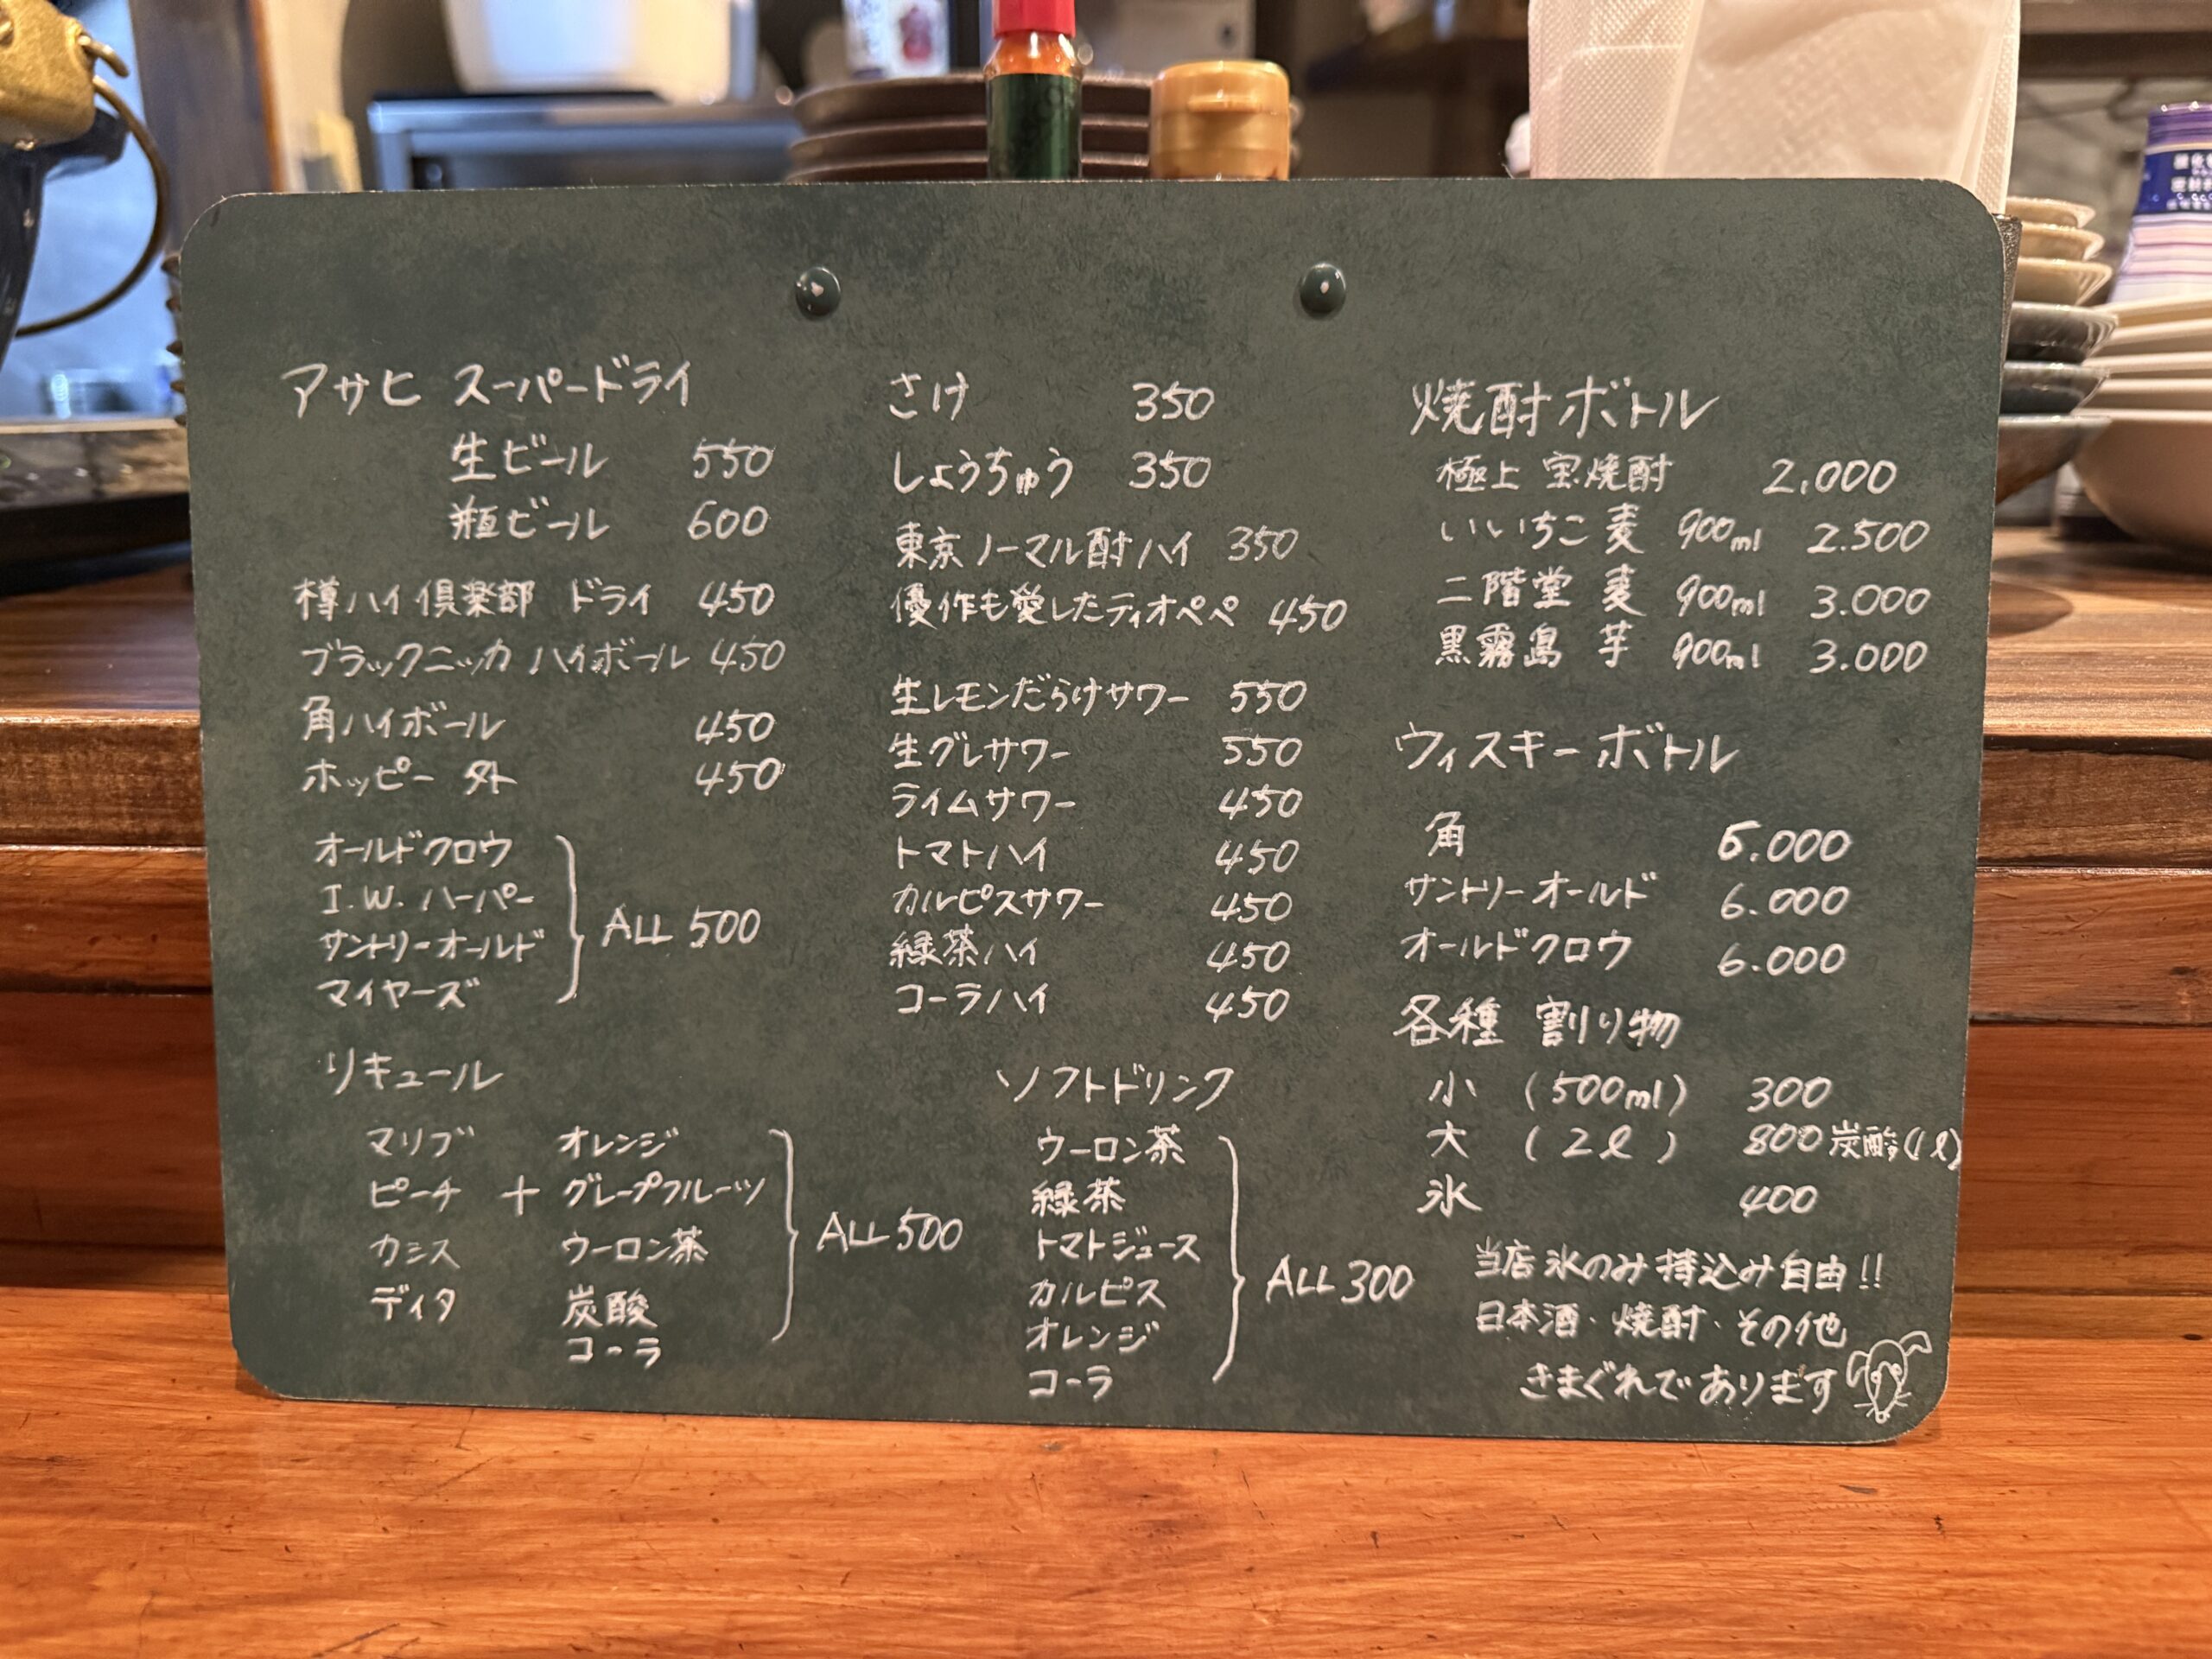 アサヒ スーパードライ
生ビール 550
瓶ビール 600
樽ハイ倶楽部 ドライ 450
ブラックニッカ ハイボール 450
角ハイボール 450
ホッピー 外 450
オールドクロウ
I.W.ハーパー
サントリーオールド
マイヤーズ
ALL 500
リキュール
マリブ オレンジ
ピーチ + グレープフルーツ
カシス ウーロン茶
ディタ 炭酸
コーラ
ALL 500
さけ 350
しょうちゅう 350
東京ノーマル酎ハイ 350
優作も愛したティオペペ 450
生レモンだらけサワー 550
生グレサワー 550
ライムサワー 450
トマトハイ 450
カルピスサワー 450
緑茶ハイ 450
コーラハイ 450
ソフトドリンク
ウーロン茶
緑茶
トマトジュース
カルピス
オレンジ
コーラ
ALL 300
焼酎ボトル
極上 宝焼酎 2.000
いいちこ 麦 900ml 2.500
二階堂 麦 900ml 3.000
黒霧島 芋 900ml 3.000
ウィスキーボトル
角 5.000
サントリーオールド 6.000
オールドクロウ 6.000
各種 割り物
小 (500ml) 300
大 (2ℓ) 800 炭酸(1ℓ)
氷 400
当店氷のみ持込み自由!!
日本酒・焼酎・その他
きまぐれであります